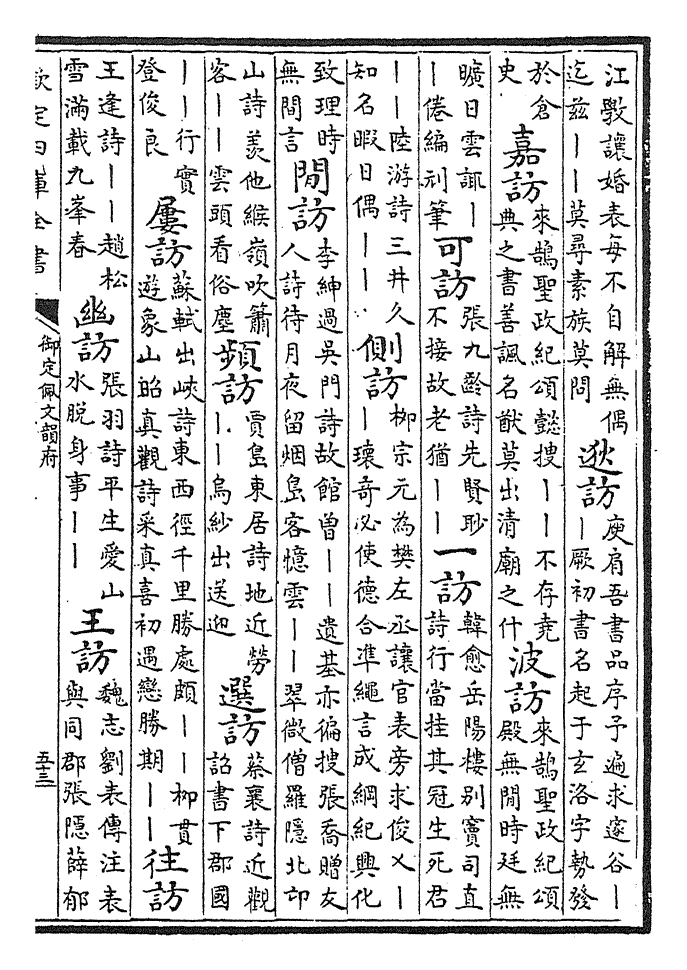 江斆讓婚表每不自解無偶
迄兹——莫尋素族莫問
逖訪
庾肩吾書品序予遍求邃谷—
—厥初書名起于玄洛字勢發
於倉
史
嘉訪
來鵠聖政紀頌懿搜——不存堯
典之書善諷名猷莫出清廟之什
波訪
來鵠聖政紀頌
殿無閒時廷無
曠日雲諏—
—倦編刓筆
可訪
張九齡詩先賢耿
不接故老猶——
一訪
韓愈岳陽樓別竇司直
詩行當挂其冠生死君
——陸游詩三井久
知名暇日偶——
側訪
柳宗元為樊左丞讓官表旁求俊乂—
—瓌奇必使德合準繩言成綱紀興化
致理時
無間言
閒訪
李紳過吳門詩故館曾——遺基亦徧搜張喬贈友
人詩待月夜留烟島客憶雲——翠微僧羅隱北邙
山詩羨他緱嶺吹簫
客——雲頭看俗塵
頻訪
賈島東居詩地近勞
——烏紗出送迎
選訪
蔡襄詩近觀
詔書下郡國
——行實
登俊良
屢訪
蘇軾出峽詩東西徑千里勝處頗——柳貫
遊象山昭真觀詩采真喜初遇戀勝期——
往訪
王逢詩——趙松
雪滿載九峯春
幽訪
張羽詩平生愛山
水脫身事——
王訪
魏志劉表傳注表
與同郡張隱薛郁
欽定四庫全書
御定佩文韻府
五十三